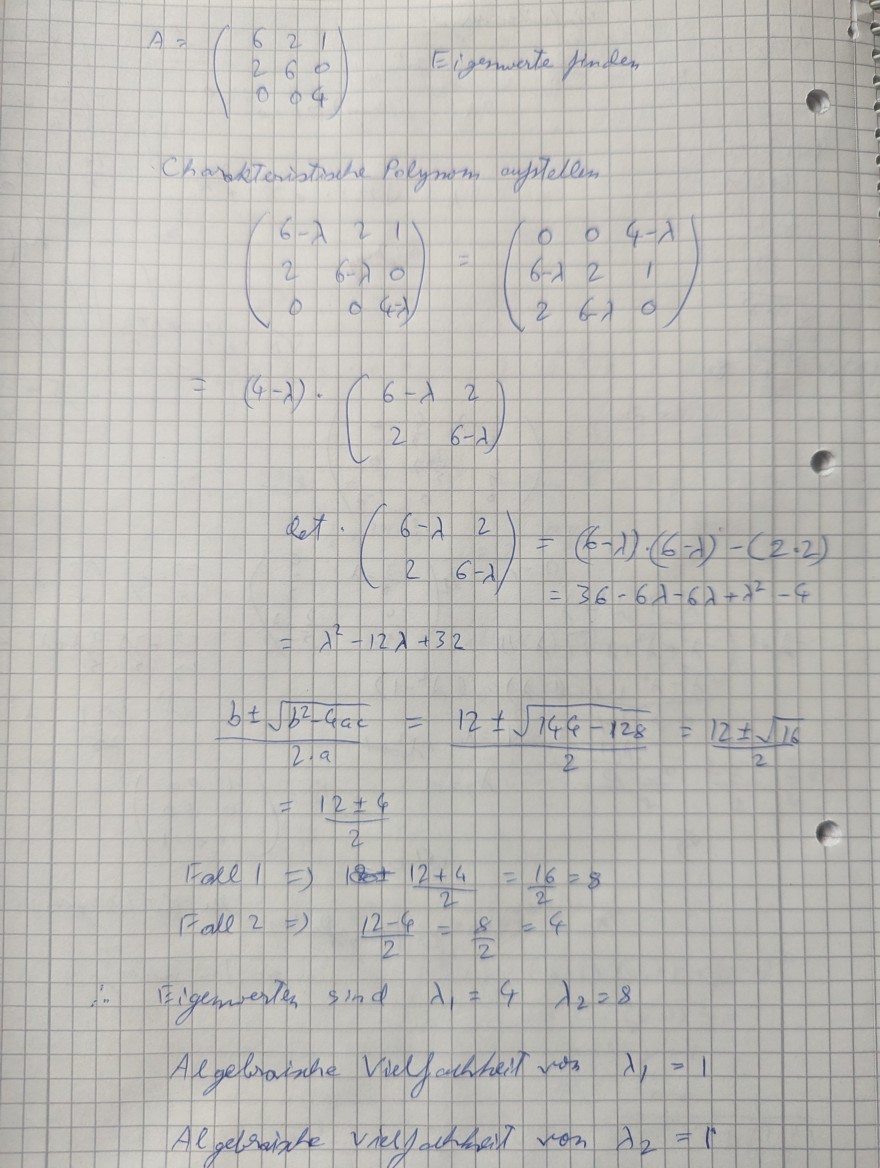 A = ( 6 2 1
2 6 0 Eigenwerte finden
0 0 4 )
Charakteristische Polynom aufstellen
( 6-λ 2 1 ) = ( 0 0 4-λ )
( 2 6-λ 0 ) ( 6-λ 2 1 )
( 0 0 4-λ ) ( 2 6-λ 0 )
= (4-λ) · ( 6-λ 2 )
( 2 6-λ )
det · ( 6-λ 2 ) = (6-λ)·(6-λ) - (2·2)
( 2 6-λ ) = 36 - 6λ - 6λ + λ² - 4
= λ² - 12λ + 32
b ± √b² - 4ac / 2·a = 12 ± √144 - 128 / 2 = 12 ± √16 / 2
= 12 ± 4 / 2
Fall 1 => 12+4 / 2 = 16 / 2 = 8
Fall 2 => 12-4 / 2 = 8 / 2 = 4
∴ Eigenwerten sind λ₁ = 4 λ₂ = 8
Algebraische Vielfachheit von λ₁ = 1
Algebraische Vielfachheit von λ₂ = 1